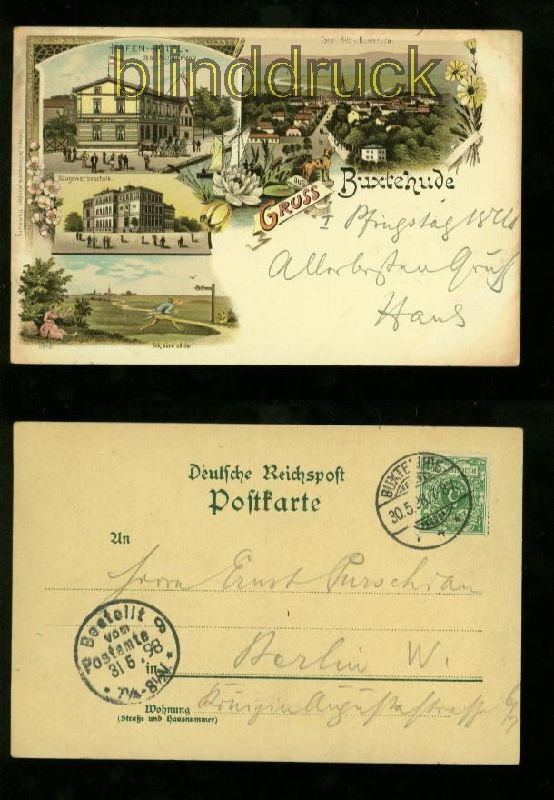 blinddruck
HAFEN-HOTEL
Total-Bild v. Buxtehude.
Baugewerbeschule.
GRUSS
aus
Buxtehude
I Pfingstag
Allerbesten Gruß
Hans
Deutsche Reichspost
Postkarte
BUXTEHUDE
30.5.98
An
Herrn Ernst Purschian
Bestellt
vom
Postamte
31/5 98
in Berlin W.
Wohnung
(Straße und Hausnummer)
Königin Augustastrasse